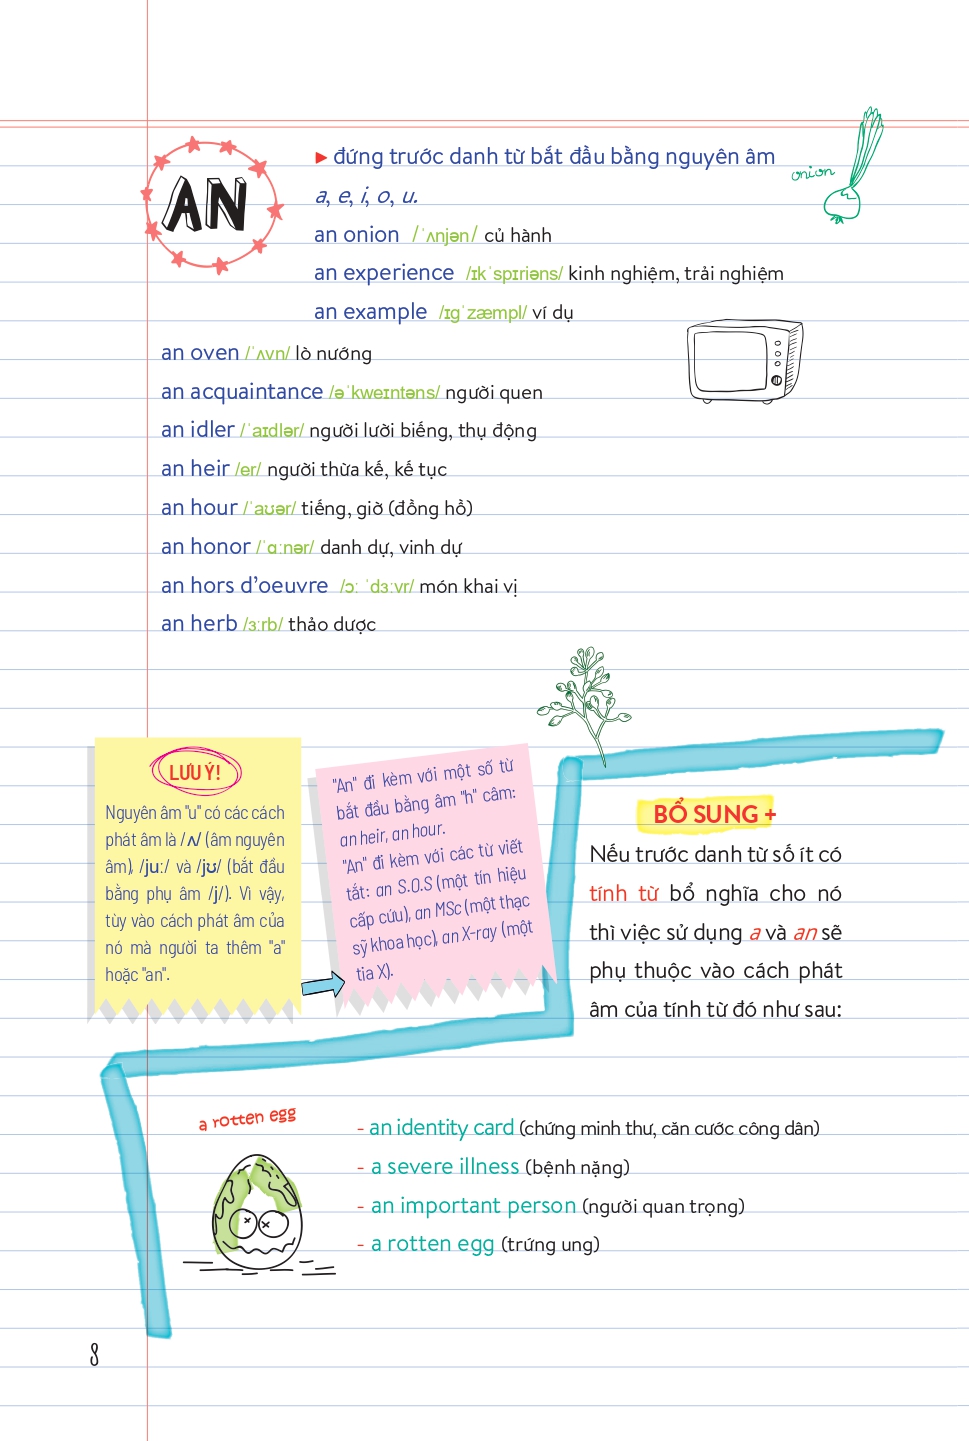 AN
▸ đứng trước danh từ bắt đầu bằng nguyên âm
a, e, i, o, u.
onion
an onion /ˈʌnjən/ củ hành
an experience /ɪkˈspɪriəns/ kinh nghiệm, trải nghiệm
an example /ɪgˈzæmpl/ ví dụ
an oven /ˈʌvn/ lò nướng
an acquaintance /əˈkweɪntəns/ người quen
an idler /ˈaɪdlər/ người lười biếng, thụ động
an heir /er/ người thừa kế, kế tục
an hour /ˈaʊər/ tiếng, giờ (đồng hồ)
an honor /ˈɑːnər/ danh dự, vinh dự
an hors d’oeuvre /ɔː ˈdɜːvr/ món khai vị
an herb /ɜːrb/ thảo dược
LƯU Ý!
Nguyên âm "u" có các cách
phát âm là /ʌ/ (âm nguyên
âm), /juː/ và /jʊ/ (bắt đầu
bằng phụ âm /j/). Vì vậy,
tùy vào cách phát âm của
nó mà người ta thêm "a"
hoặc "an".
"An" đi kèm với một số từ
bắt đầu bằng âm "h" câm:
an heir, an hour.
"An" đi kèm với các từ viết
tắt: an S.O.S (một tín hiệu
cấp cứu), an MSc (một thạc
sỹ khoa học), an X-ray (một
tia X).
BỔ SUNG +
Nếu trước danh từ số ít có
tính từ bổ nghĩa cho nó
thì việc sử dụng a và an sẽ
phụ thuộc vào cách phát
âm của tính từ đó như sau:
a rotten egg
- an identity card (chứng minh thư, căn cước công dân)
- a severe illness (bệnh nặng)
- an important person (người quan trọng)
- a rotten egg (trứng ung)
8